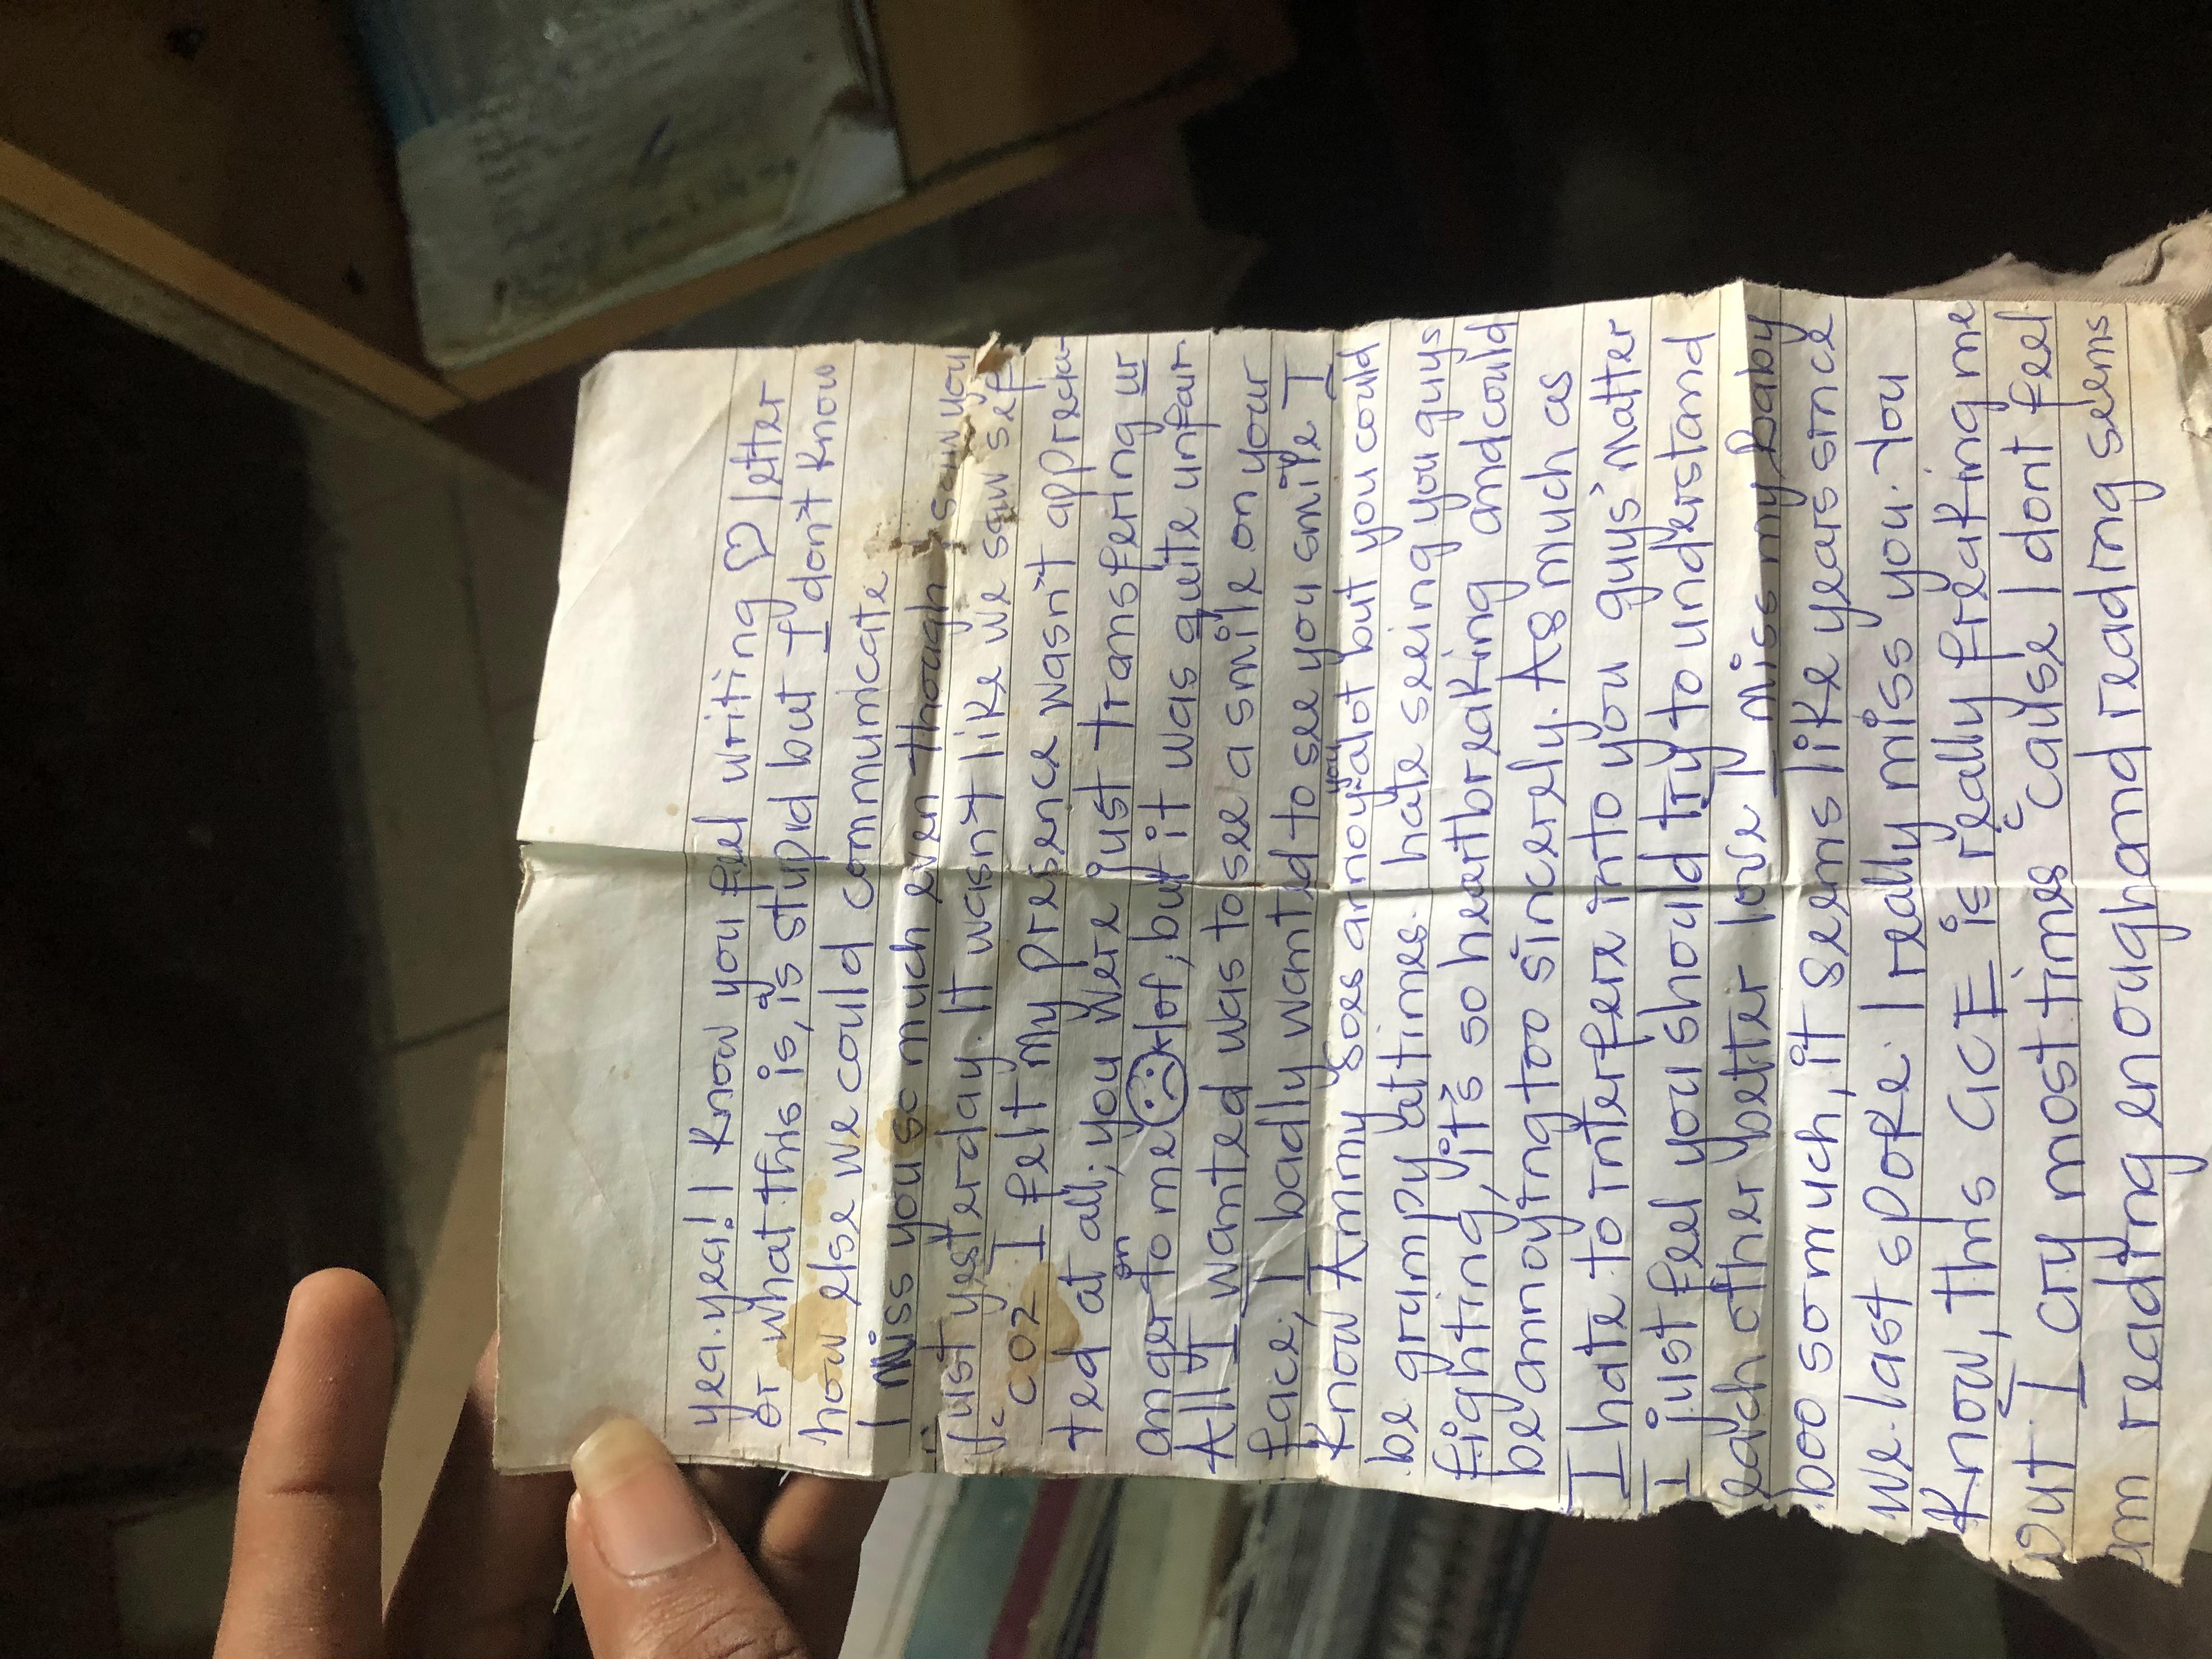 yea. yea! I know you feel writing ♡ letter
or what this is, is stupid but I don't know
how else we could communicate
I miss you so much even though I saw you
just yesterday. It wasn't like we saw sef
"coz I felt my presence wasn't apprecia-
ted at all; you were just transfering ur
anger on to me ☹, but it was quite unfair.
All I wanted was to see a smile on your
face; I badly wanted to see you smile. I
know Ammy does annoy you alot but you could
be grumpy at times. I hate seeing you guys
fighting, it's so heartbreaking and could
be annoying too sincerely. As much as
I hate to interfere into you guys' matter
I just feel you should try to understand
each other better love. I miss my Baby
boo so much, it seems like years since
we last spoke. I really miss you. You
know, this GCE is really freaking me
out. I cry most times "cause I dont feel
am reading enough and reading seems